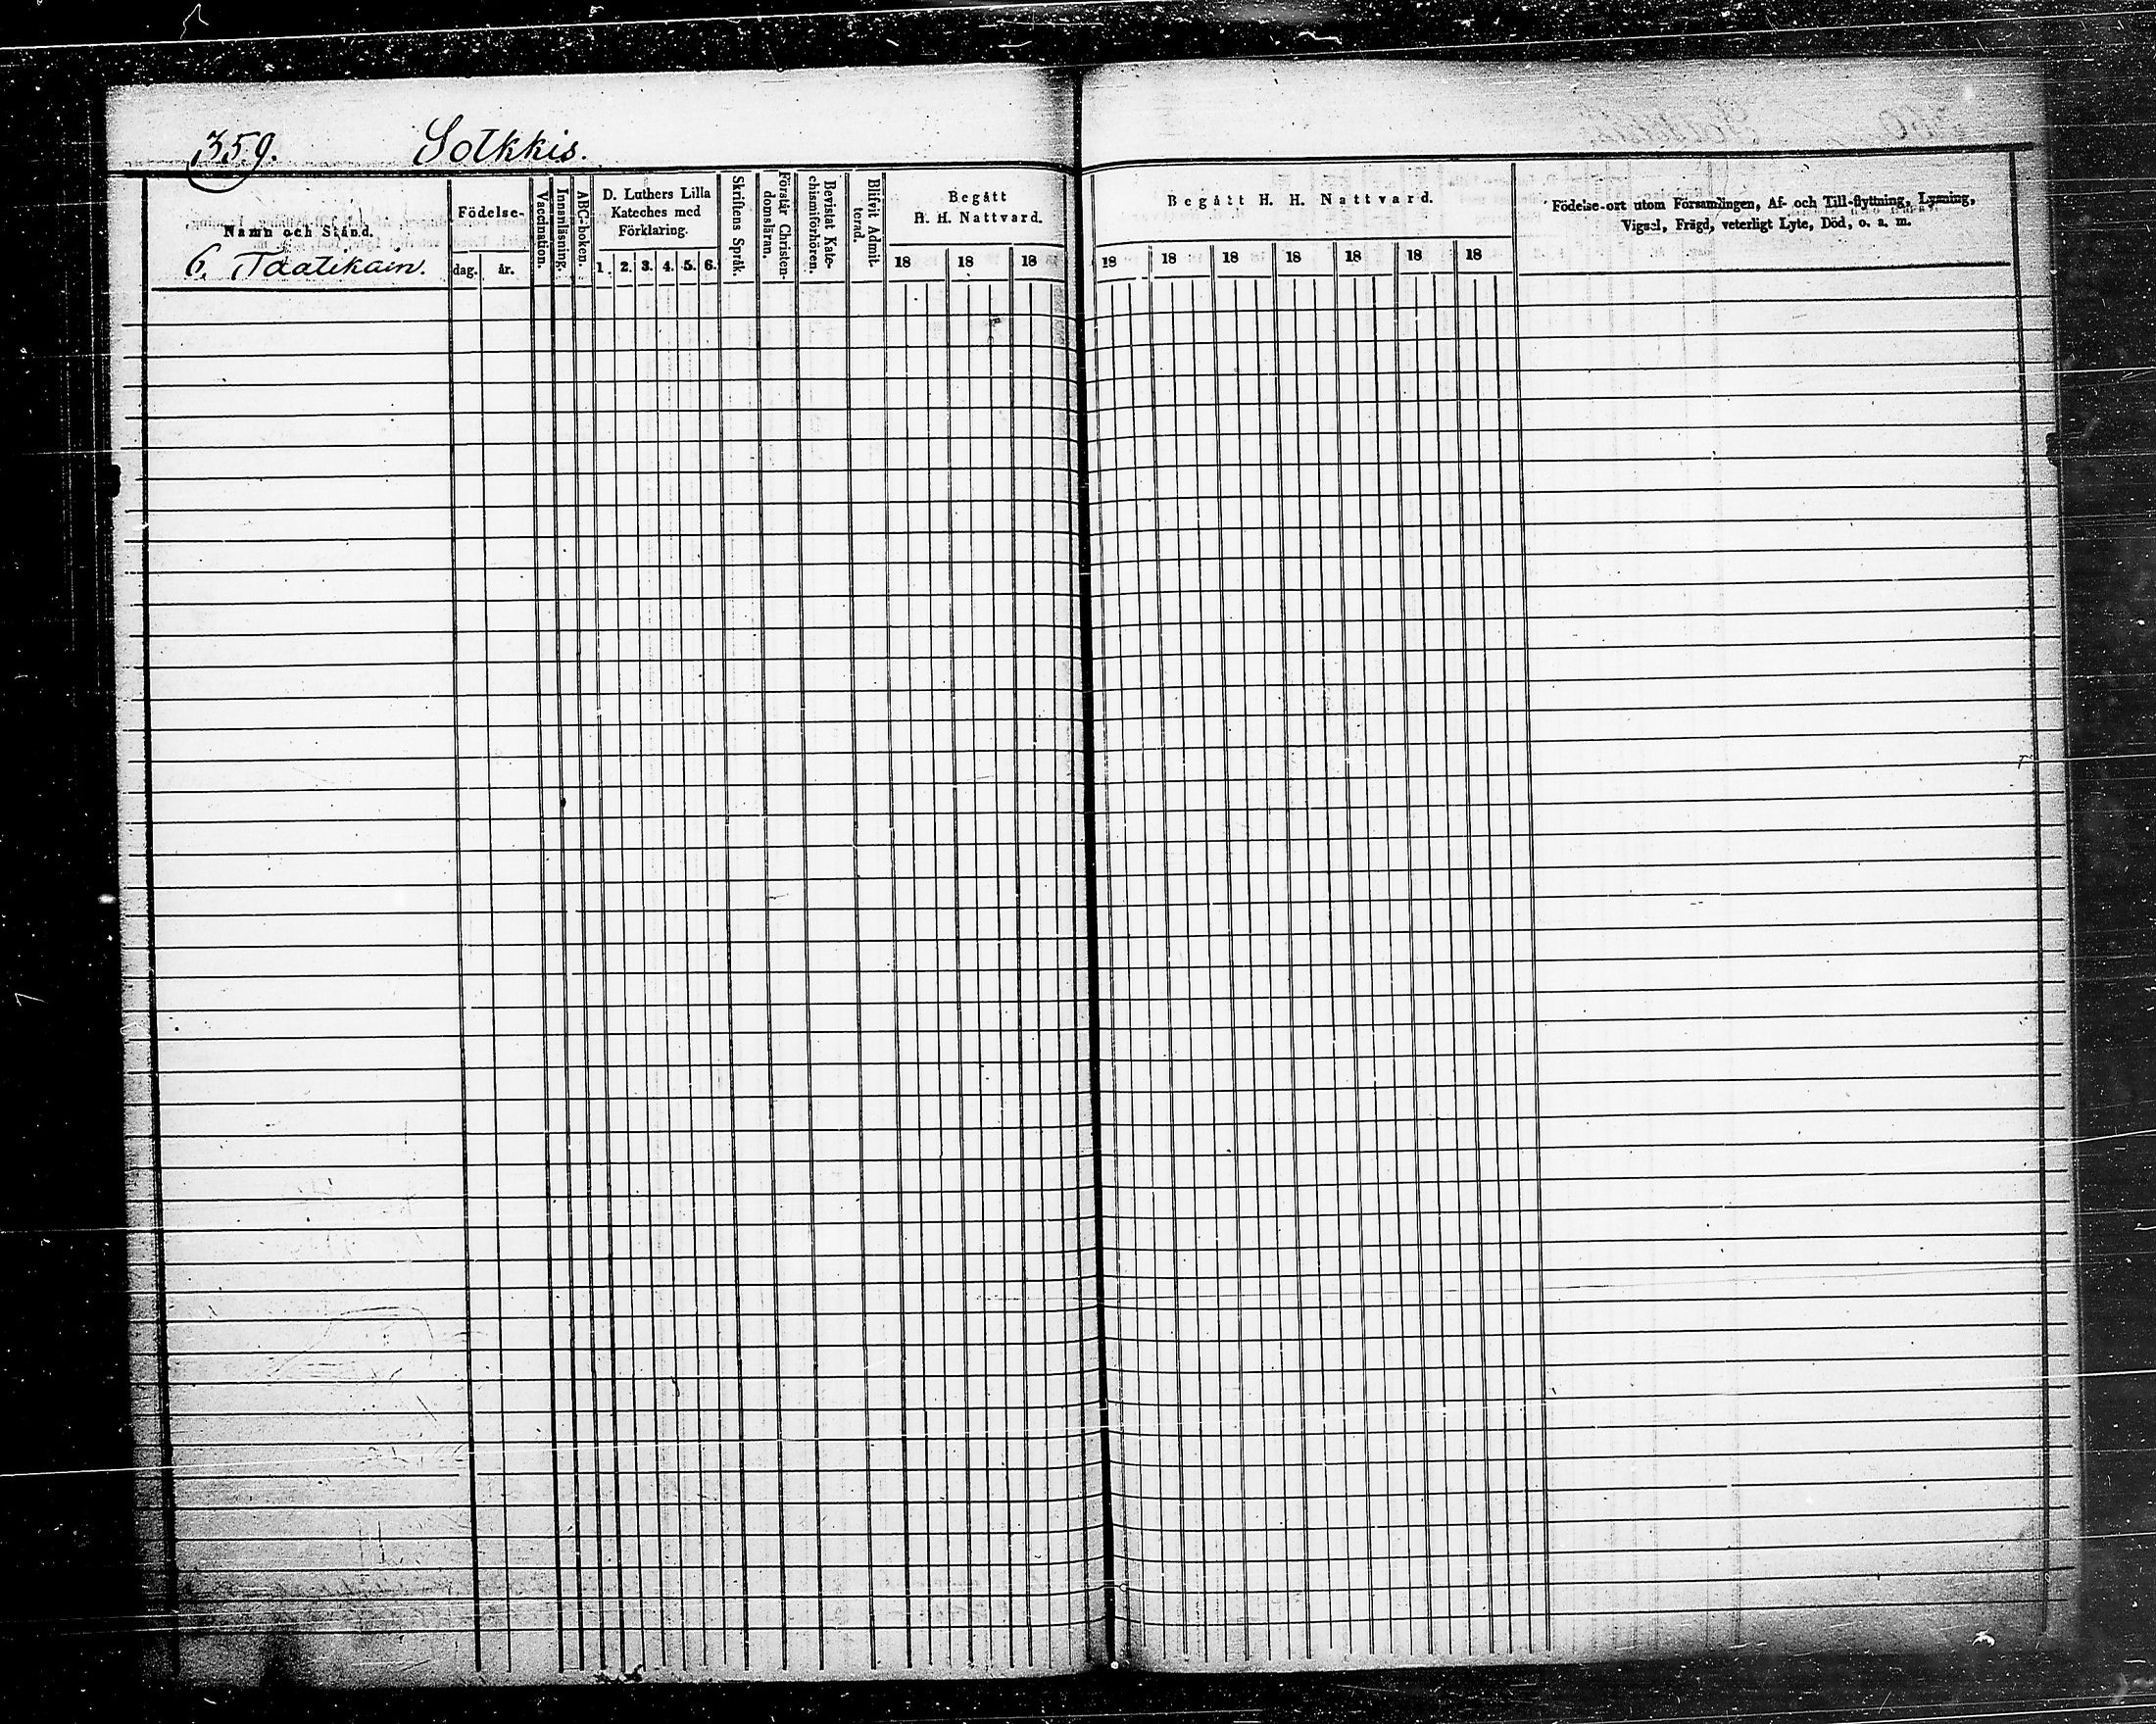 359. Sotkkis.
Namn och Stånd.
6. Taatikain.
Födelse-
dag. år.
Vaccination.
Innanläsning.
ABC-boken.
D. Luthers Lilla
Kateches med
Förklaring.
1. 2. 3. 4. 5. 6.
Skriftens Språk.
Förstår Christen-
domsläran.
Bevistat Kate-
chismiförhören.
Blifvit Admit-
terad.
Begått
H. H. Nattvard.
18 18 18
Begått H. H. Nattvard.
18 18 18 18 18 18 18
Födelse-ort utom Församlingen, Af- och Till-flyttning, Lysning,
Vigsel, Frägd, veterligt Lyte, Död, o. a. m.